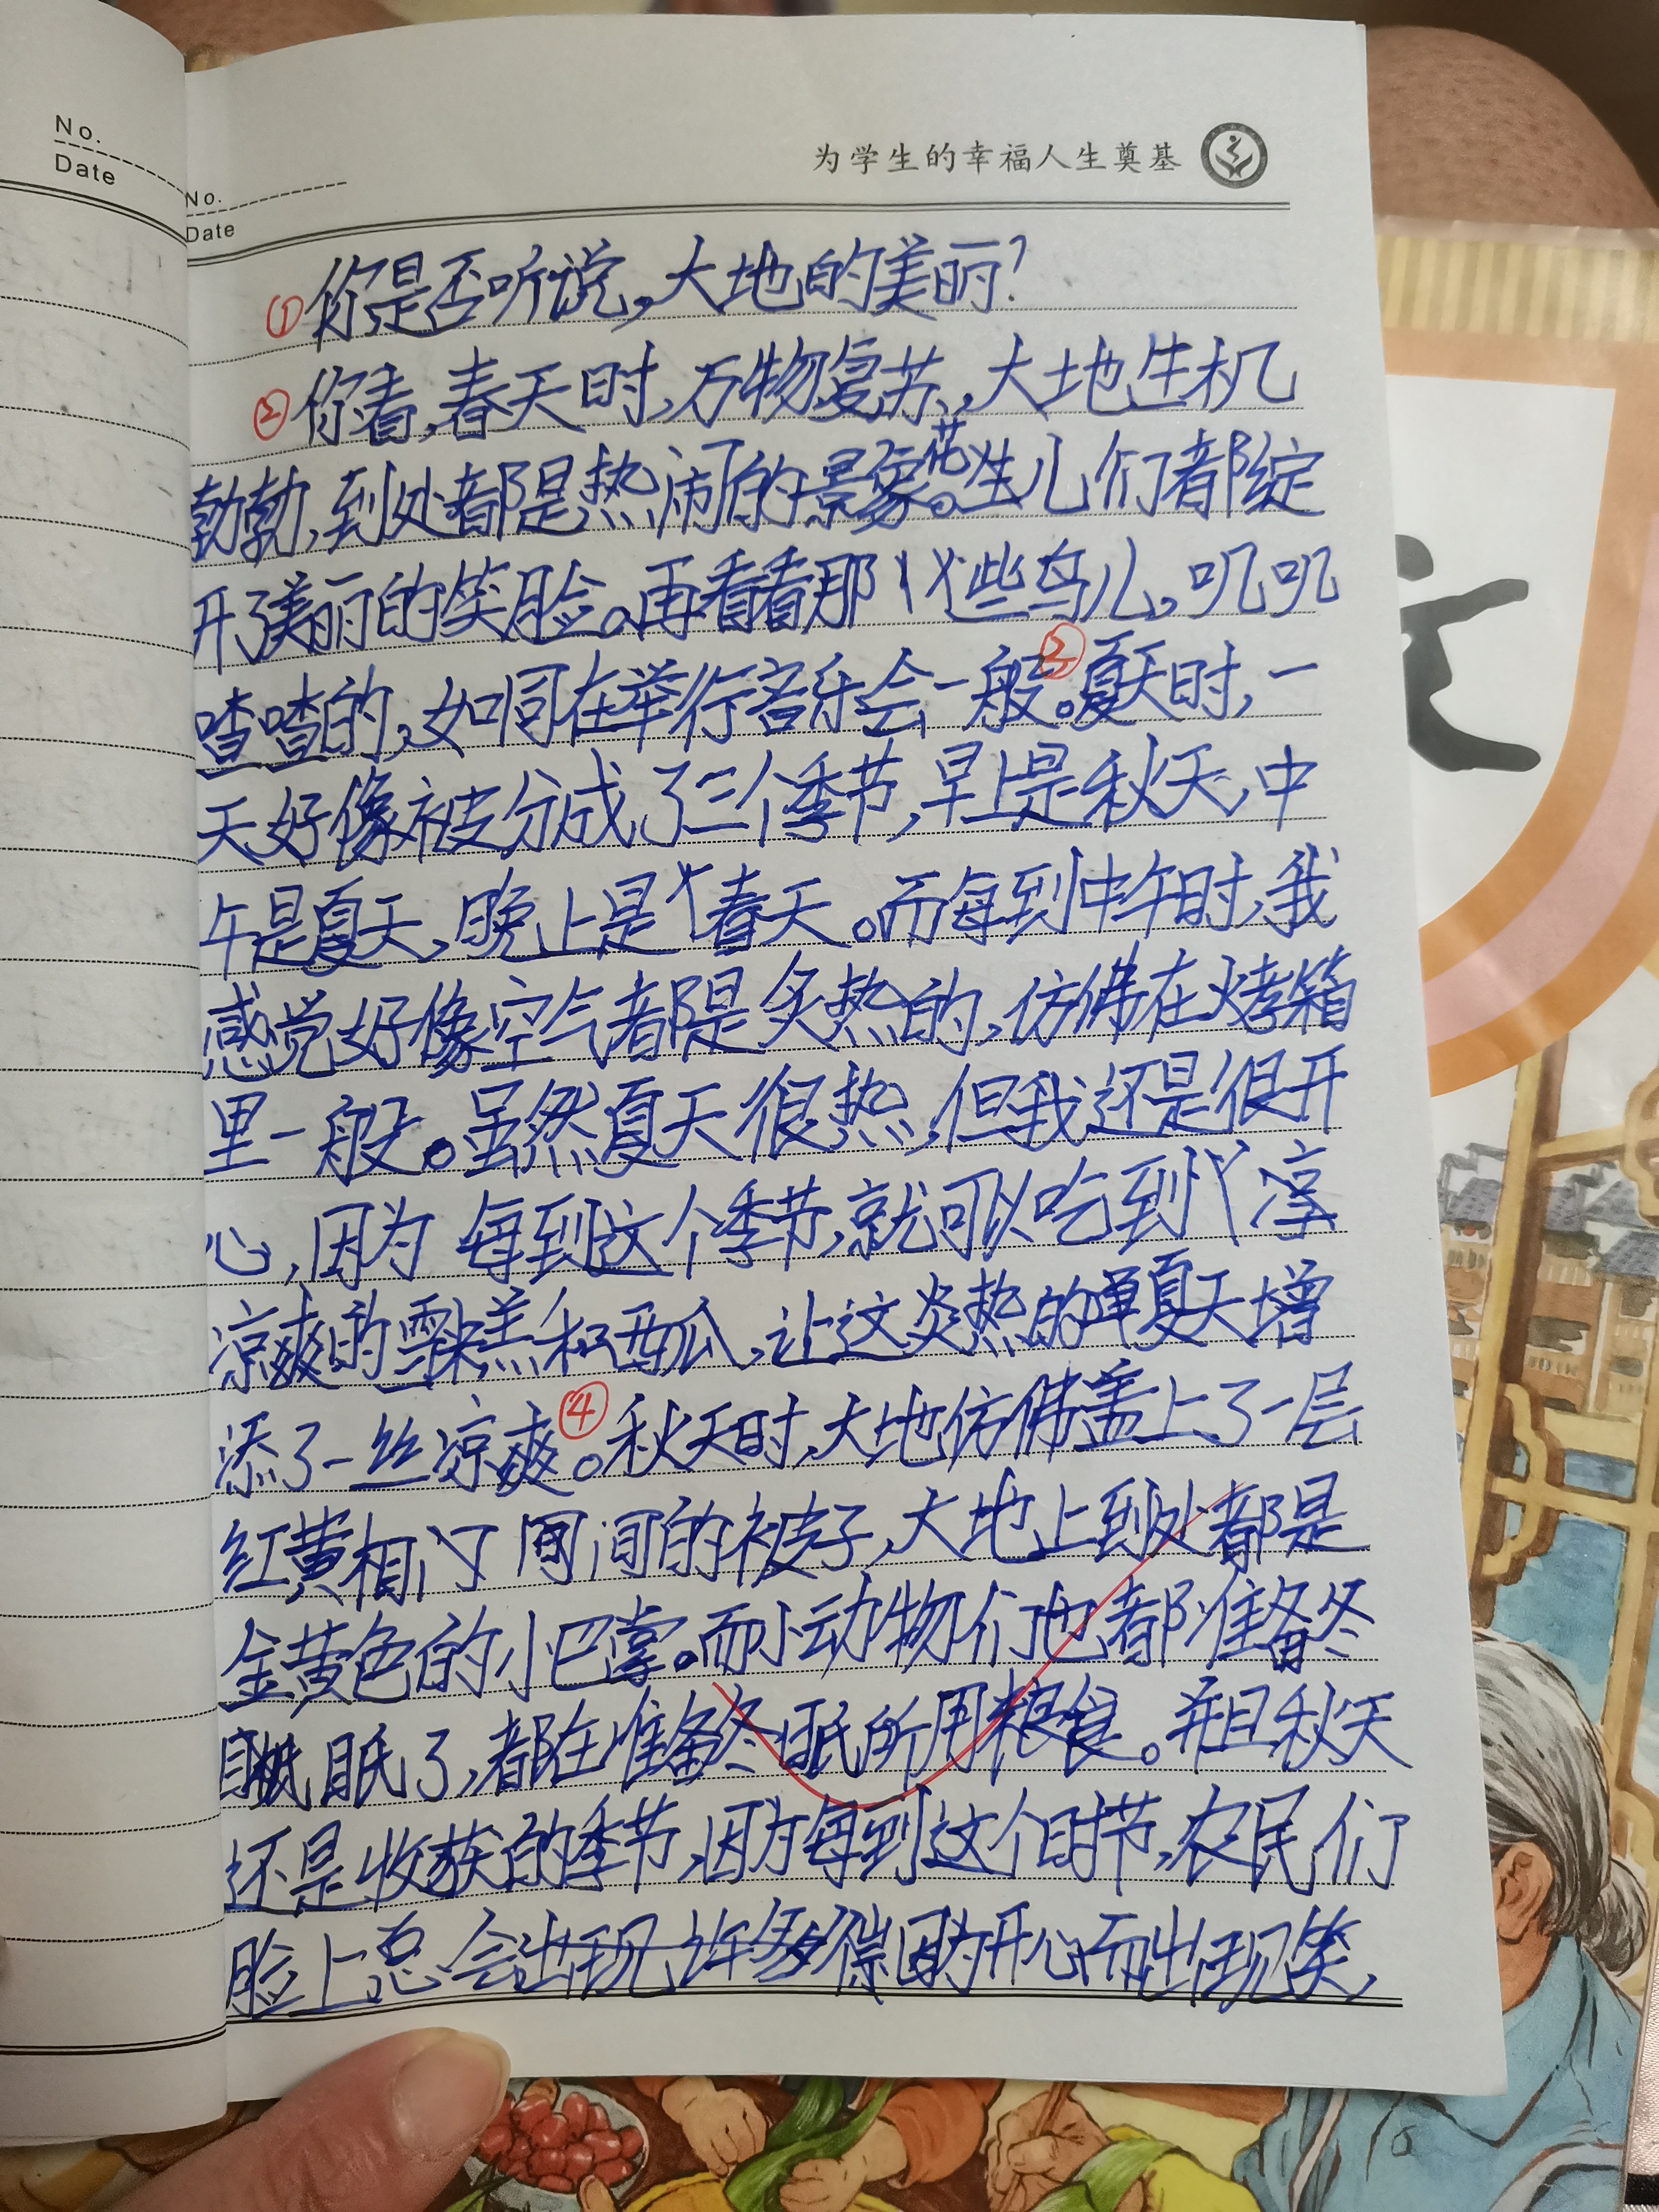 No.
Date
No.
Date
为学生的幸福人生奠基
①你是否听说,大地的美丽?
②你看,春天时,万物复苏,大地生机
勃勃,到处都是热闹的景象。花儿们都绽
开了美丽的笑脸。再看看那些鸟儿,叽叽
喳喳的,如同在举行音乐会一般。③夏天时,一
天好像被分成了三个季节,早上是秋天,中
午是夏天,晚上是春天。而每到中午时,我
感觉好像空气都是炙热的,仿佛在烤箱
里一般。虽然夏天很热,但我还是很开
心,因为每到这个季节,就可以吃到
凉爽的雪糕和西瓜,让这炎热的夏天增
添了一丝凉爽。④秋天时,大地仿佛盖上了一层
红黄相间的被子,大地上到处都是
金黄色的小巴掌。而小动物们也都准备冬
眠了,都在准备冬眠所用粮食。并且秋天
还是收获的季节,因为每到这个时节,农民们
脸上总会因为开心而出现笑,